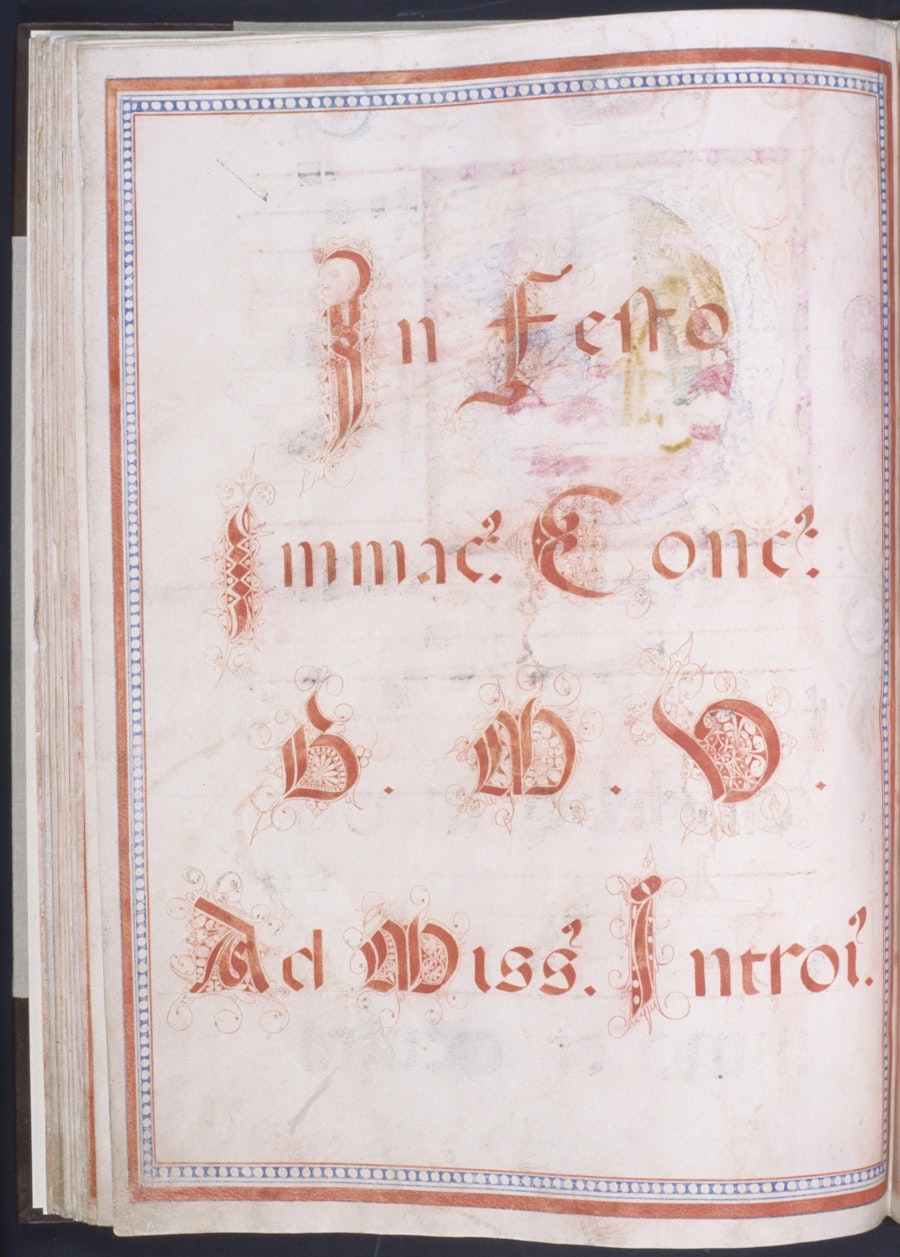 In Festo
Immac. Conc.
B. M. V.
Ad Miss. Introi.